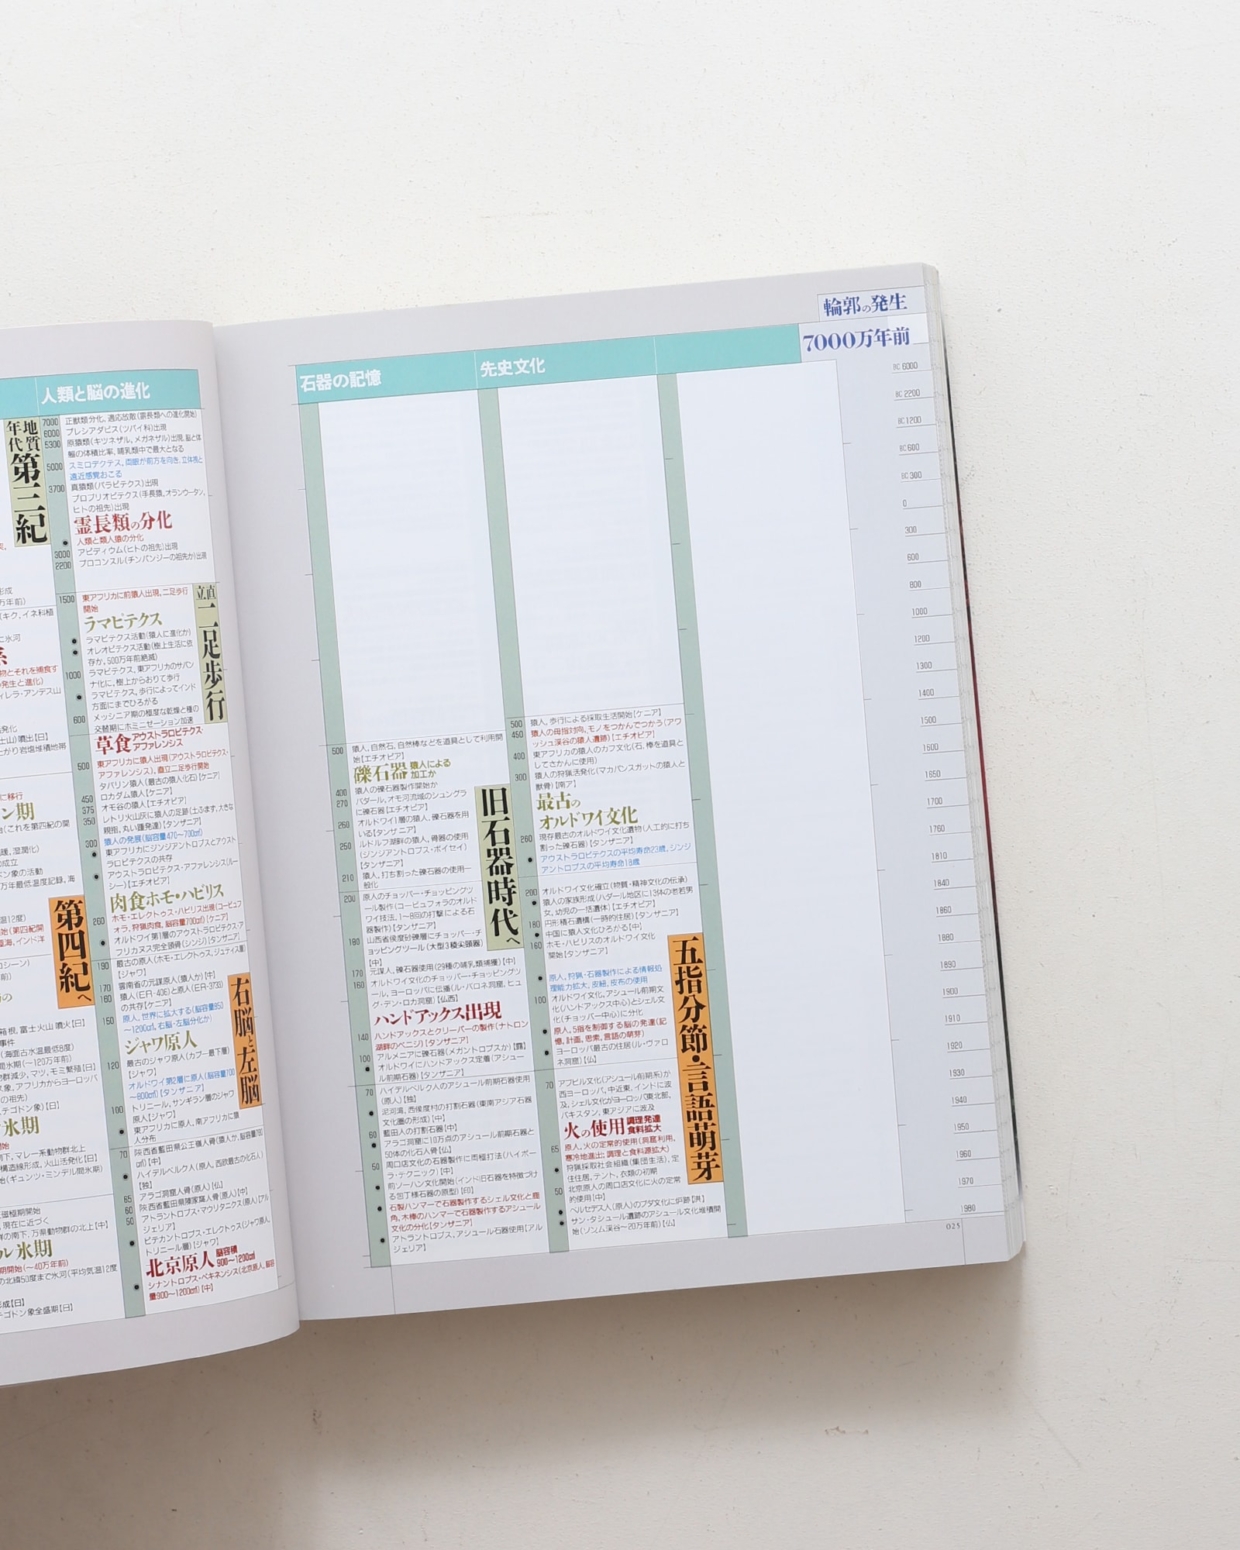 人類と脳の進化
地質
年代
第三紀
7000 正獣類分化、適応放散(霊長類への進化開始)
6000 プレシアダピス(ツパイ科)出現
5300 原猿類(キツネザル、メガネザル)出現、脳と体
軸の体積比率、哺乳類中で最大となる
5000 スミロデクテス、両眼が前方を向き、立体視と
遠近感覚おこる
3700 真猿類(パラピテクス)出現
プロプリオピテクス(手長猿、オランウータン、
ヒトの祖先)出現
霊長類の分化
人類と類人猿の分化
3000 アピディウム(ヒトの祖先)出現
2200 プロコンスル(チンパンジーの祖先か)出現
直立
二足歩行
1500 東アフリカに前猿人出現、二足歩行
開始
ラマピテクス
ラマピテクス活動(猿人に進化か)
オレオピテクス活動(樹上生活に依
存か、500万年前絶滅)
1000 ラマピテクス、東アフリカのサバン
ナ化に、樹上からおりて歩行
ラマピテクス、歩行によってインド
方面にまでひろがる
600 メッシニア期の極度な乾燥と種の
交替期にホミニゼーション加速
草食アウストラロピテクス・
アファレンシス
500 東アフリカに猿人出現(アウストラロピテクス・
アファレンシス)、直立二足歩行開始
タバリン猿人(最古の猿人化石)【ケニア】
450 ロカダム猿人【ケニア】
375 オモ谷の猿人【エチオピア】
350 レトリ火山灰に猿人の足跡(土ふまず、大きな
親指、丸い踵発達)【タンザニア】
300 猿人の発展(脳容量470〜700㎤)
東アフリカにジンジアントロプスとアウスト
ラロピテクスの共存
アウストラロピテクス・アファレンシス(ルー
シー)【エチオピア】
肉食ホモ・ハビリス
260
第四紀へ
190 最古の原人(ホモ・エレクトゥス、ジェティス層)
【ジャワ】
170 雲南省の元謀原人(猿人か)【中】
160 猿人(ER-406)と原人(ER-3733)
の共存【ケニア】
150 原人、世界に拡大する(脳容量85)
〜1200㎤、右脳・左脳分化か)
ジャワ原人
120 最古のジャワ原人(カブー最下層)
【ジャワ】
オルドワイ第2層に原人(脳容量700
〜800㎤)【タンザニア】
100 トリニール、サンギラン層のジャワ
原人【ジャワ】
東アフリカに原人、南アフリカに猿
人分布
右脳と左脳
70 陝西省藍田県公王嶺人骨(猿人か、脳容量780
㎤)【中】
ハイデルベルク人(原人、西欧最古の化石人)
【独】
65 アラゴ洞窟人骨(原人)【仏】
60 陝西省藍田県陳家窩人骨(原人)【中】
50 アトラントロプス・マウリタニクス(原人)【アル
ジェリア】
ピテカントロプス・エレクトゥス(ジャワ原人、
トリニール層)【ジャワ】
北京原人 脳容積
900〜1200㎤
シナントロプス・ペキネンシス(北京原人、脳容
量900〜1200㎤)【中】
輪郭の発生
7000万年前
石器の記憶
500 猿人、自然石、自然棒などを道具として利用開
始【エチオピア】
礫石器 猿人による
加工か
400 猿人の礫石器製作開始か
270 ハダール、オモ河流域のシュングラ
に礫石器【エチオピア】
260 オルドワイI層の猿人、礫石器を用
いる【タンザニア】
250 ルドルフ湖畔の猿人、骨器の使用
(ジンジアントロプス・ボイセイ)
【タンザニア】
210 猿人、打ち割った礫石器の使用一
般化
旧石器時代へ
200 原人のチョッパー・チョッピングツ
ール製作(コービュフォラのオルド
ワイ技法、1〜8回の打撃による石
器製作)【タンザニア】
180 山西省侯度砂礫層にチョッパー・チ
ョッピングツール(大型3稜尖頭器)
【中】
170 元謀人、礫石器使用(29種の哺乳類捕獲)【中】
160 オルドワイ文化のチョッパー・チョッピングツ
ール、ヨーロッパに伝播(ル・バロネ洞窟、ヒュ
グ・デン・ロカ洞窟)【仏西】
ハンドアックス出現
140 ハンドアックスとクリーバーの製作(ナトロン
湖畔のペニンジ)【タンザニア】
100 アルメニアに礫石器(メガントロプスか)【露】
オルドワイにハンドアックス定着(アシュー
ル前期石器)【タンザニア】
70 ハイデルベルク人のアシュール前期石器使用
(原人)【独】
泥河湾、西侯度村の打割石器(東南アジア石器
文化圏の形成)【中】
60 藍田人の打割石器【中】
アラゴ洞窟に10万点のアシュール前期石器と
50体の化石人骨【仏】
周口店文化の石器製作に両極打法(ハイポー
ラ・テクニック)【中】
50 前ソーハン文化開始(インド旧石器を特徴づけ
る包丁様石器の原型)【印】
石製ハンマーで石器製作するシェル文化と鹿
角、木棒のハンマーで石器製作するアシュール
文化の分化【タンザニア】
アトラントロプス、アシュール石器使用【アル
ジェリア】
先史文化
500 猿人、歩行による採取生活開始【ケニア】
450 猿人の母指対向、モノをつかんでつかう(アワ
ッシュ渓谷の猿人遺跡)【エチオピア】
400 東アフリカの猿人のカフ文化(石、棒を道具と
してさかんに使用)
300 猿人の狩猟活発化(マカパンスガットの猿人と
獣骨)【南ア】
最古の
オルドワイ文化
260 現存最古のオルドワイ文化遺物(人工的に打ち
割った礫石器)【タンザニア】
アウストラロピテクスの平均寿命23歳、ジンジ
アントロプスの平均寿命18歳
200 オルドワイ文化確立(物質・精神文化の伝承)
猿人の家族形成(ハダール地区に13体の老若男
女、幼児の一括遺体)【エチオピア】
180 円形積石遺構(一時的住居)【タンザニア】
中国に猿人文化ひろがる【中】
160 ホモ・ハビリスのオルドワイ文化
開始【タンザニア】
原人、狩猟・石器製作による情報処
理能力拡大、皮紐、皮布の使用
100 オルドワイ文化、アシュール前期文
化(ハンドアックス中心)とシェル文
化(チョッパー中心)に分化
原人、5指を制御する脳の発達(記
憶、計画、思索、言語の萌芽)
ヨーロッパ最古の住居(ル・ヴァロ
ネ洞窟)【仏】
五指分節・言語萌芽
70 アブビル文化(アシュール前期系)が
西ヨーロッパ、中近東、インドに波
及、シェル文化がヨーロッパ東北部、
パキスタン、東アジアに波及
火の使用 調理発達
食料拡大
65 原人、火の定常的使用(洞窟利用、
寒冷地進出、調理と食料源拡大)
狩猟採取社会組織(集団生活)、定
住住居、テント、衣類の初期
50 北京原人の周口店文化に火の定常
的使用【中】
ベルセデス人(原人)のブダ文化に炉跡【洪】
サン・タシュール遺跡のアシュール文化堆積開
始(ソンム渓谷〜20万年前)【仏】
BC 6000
BC 2200
BC 1200
BC 600
BC 300
0
300
600
800
1000
1200
1300
1400
1500
1600
1650
1700
1760
1810
1840
1860
1880
1890
1900
1910
1920
1930
1940
1950
1960
1970
1980
025